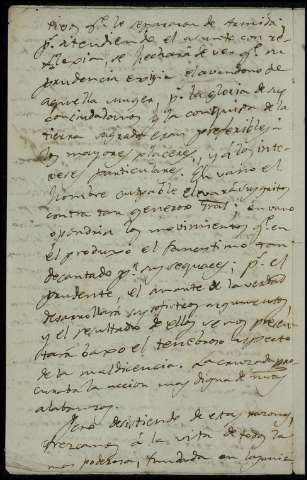 tivos q.e le separaron de Armida;
p.o atendiendo el asunto con re-
flexion, se hechará de ver q.e su
prudencia exigia el abandono de
aquella muger, p.s la gloria de sus
conciudadanos y la conquista de la
tierra sagrada eran preferibles a
los mayores placeres, y á los inte-
reses particulares. En vano el
hombre sensible elevará sus gritos
contra tan generoso; en vano
opondria los movimientos q.e en
él produxo el fanatismo tan
decantado p.r sus sequaces; p.s el
prudente, el amante de la verdad
desarrollará sus artistas argumentos
y el resultado de ellos se nos presen-
tará baxo el tenebroso aspecto
de la maldicencia. La cruzada pro-
curaba la accion mas digna de nras
alabanzas.
Pero desistiendo de esta razones,
á la vista de todos la
mas poderosa, fundada en la